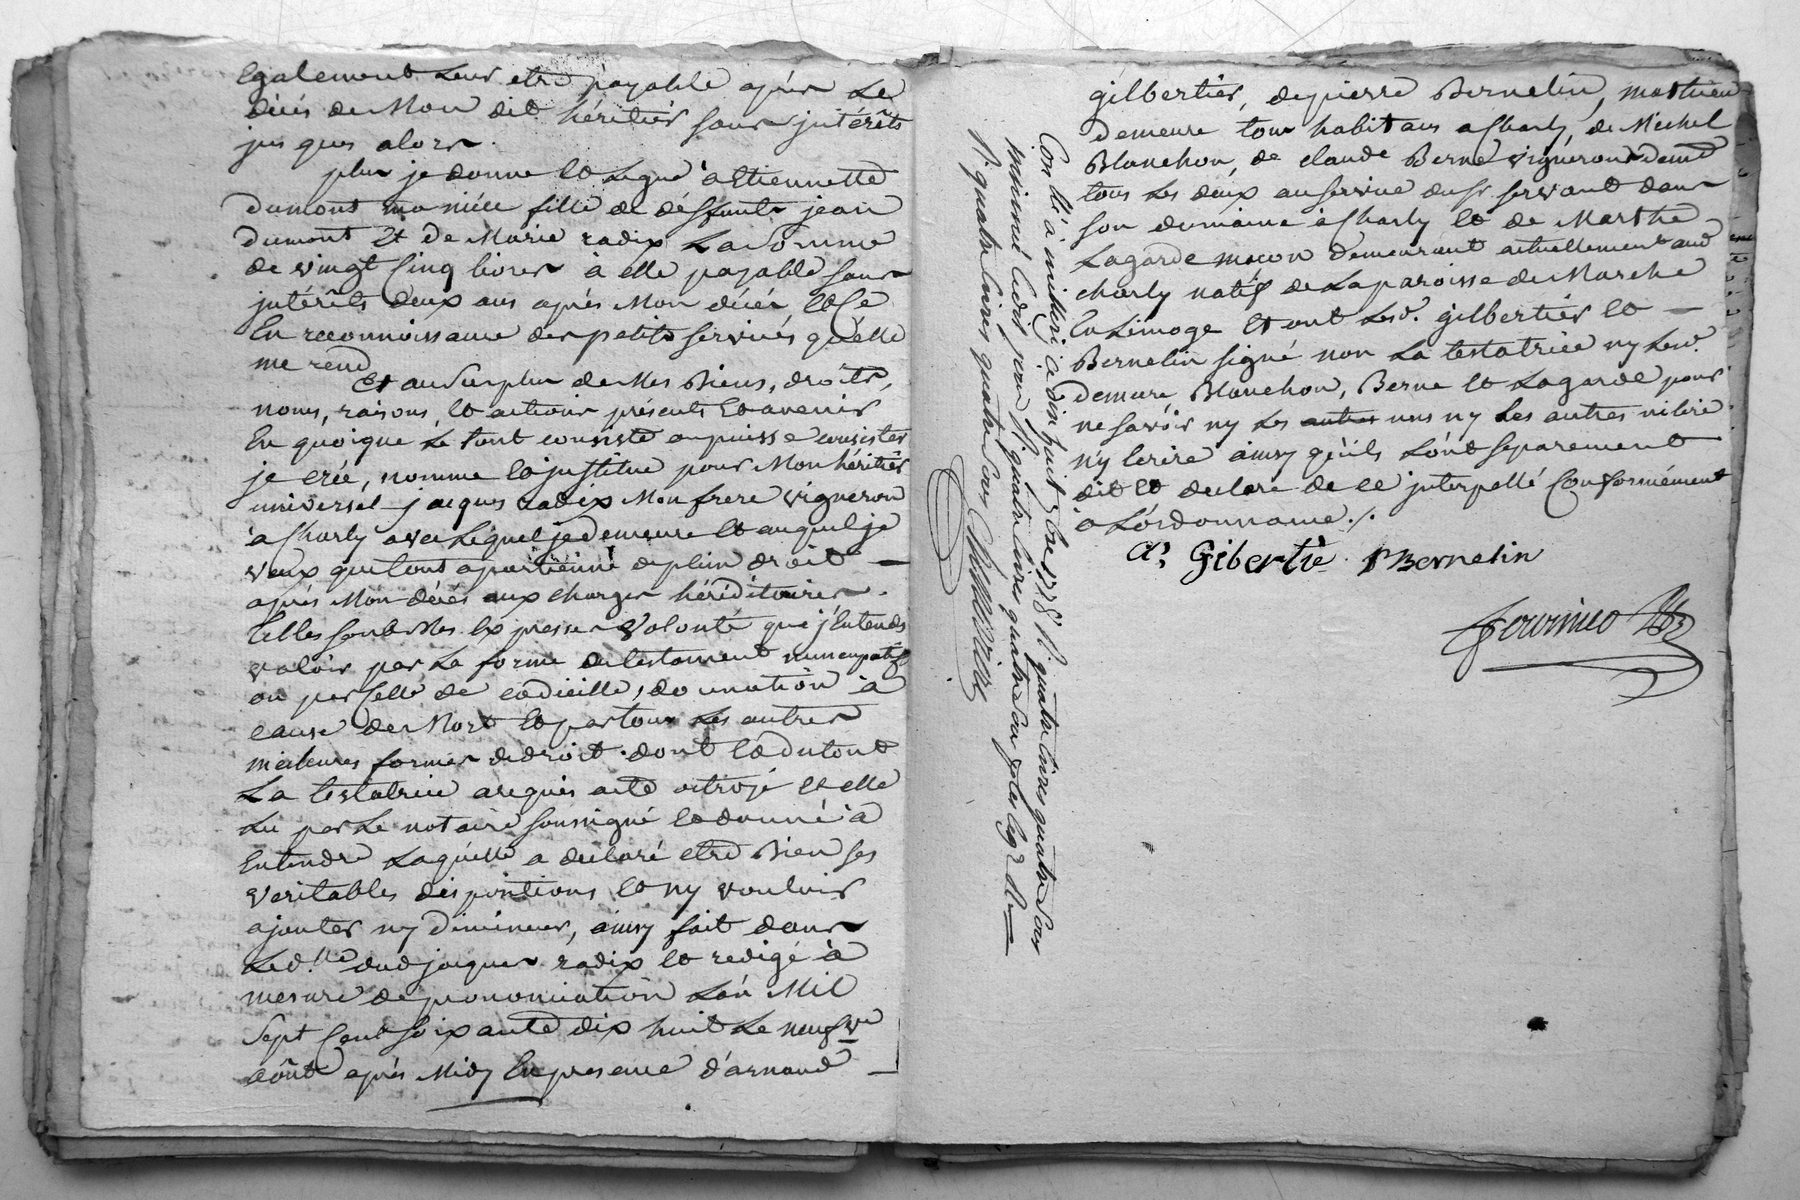 Egalement leur etre payable après le
décés de Mon dit héritier sans jntérêts
jus ques alors.
plus je donne et Legue à Etiennette
Dumont ma niéce fille de deffunts jean
Dumont et de Marie radix La Somme
de vingt Cinq livres à elle payable sans
jntérêts deux ans aprés Mon décés et Ce
En reconnoissance des petits services qu'elle
me rend
Et au Surplus de Mes Biens, droits,
noms, raisons et actions présents et avenir
En quoique Le tout consiste ou puisse consister
je crée, nomme et jnstitue pour Mon héritier
universel jacques radix Mon frere vigneron
à Charly avec Lequel je demeure et auquel je
veux que tout apartienne de plein droit —
aprés Mon décés aux charges héréditaires.
telles sont Mes Expresses Volonté que j'Entends
valoir par La forme de testament nuncupatif
ou par Celle de codicille, donnation à
cause de Mort et par tous Les autres
meilleures formes de droit. dont et du tout
La testatrice a requis acte octroyé et elle
Lu par Le notaire soussigné et donné à
Entendre Laquelle a declaré etre Bien ses
veritables dispositions et ny vouloir
ajouter ny diminuer, ainsy fait dans
Le d.lle dud jacques radix et redigé à
mesure de prononciation L'an Mil
Sept Cent Soixante dix huit Le neufve
aôut aprés Midy En presence d'arnaud —
gilbertier, de pierre Bernelin, mathieu
Demeure tous habitans a Charly, de Michel
Blanchon, de claude Berne vignerons dem.t
tous Les deux au service du sr servant dans
son domaine à Charly et de Marthe
Lagarde macon demeurant actuellement aud
charly natif de La paroisse de Marche
En Limoge Et ont Lesd. gilbertier et —
Bernelin signé non La testatrice ny Lesd.
Demeure, Blanchon, Berne et Lagarde pour
ne savoir ny Les autres uns ny Les autres ni lire
n'y Ecrire ainsy qu'ils L'ont separement
dit et declaré de ce jnterpellé Conformément
a L'ordonnance ./.
Ar Gibertiè P Bernelin
Con.llé à millery ce dix huit 7bre 1778 R. quatre livres quatre Sous
minimé Ledit jour R quatre livres quatre Sous
R. quatre livres quatre Sous